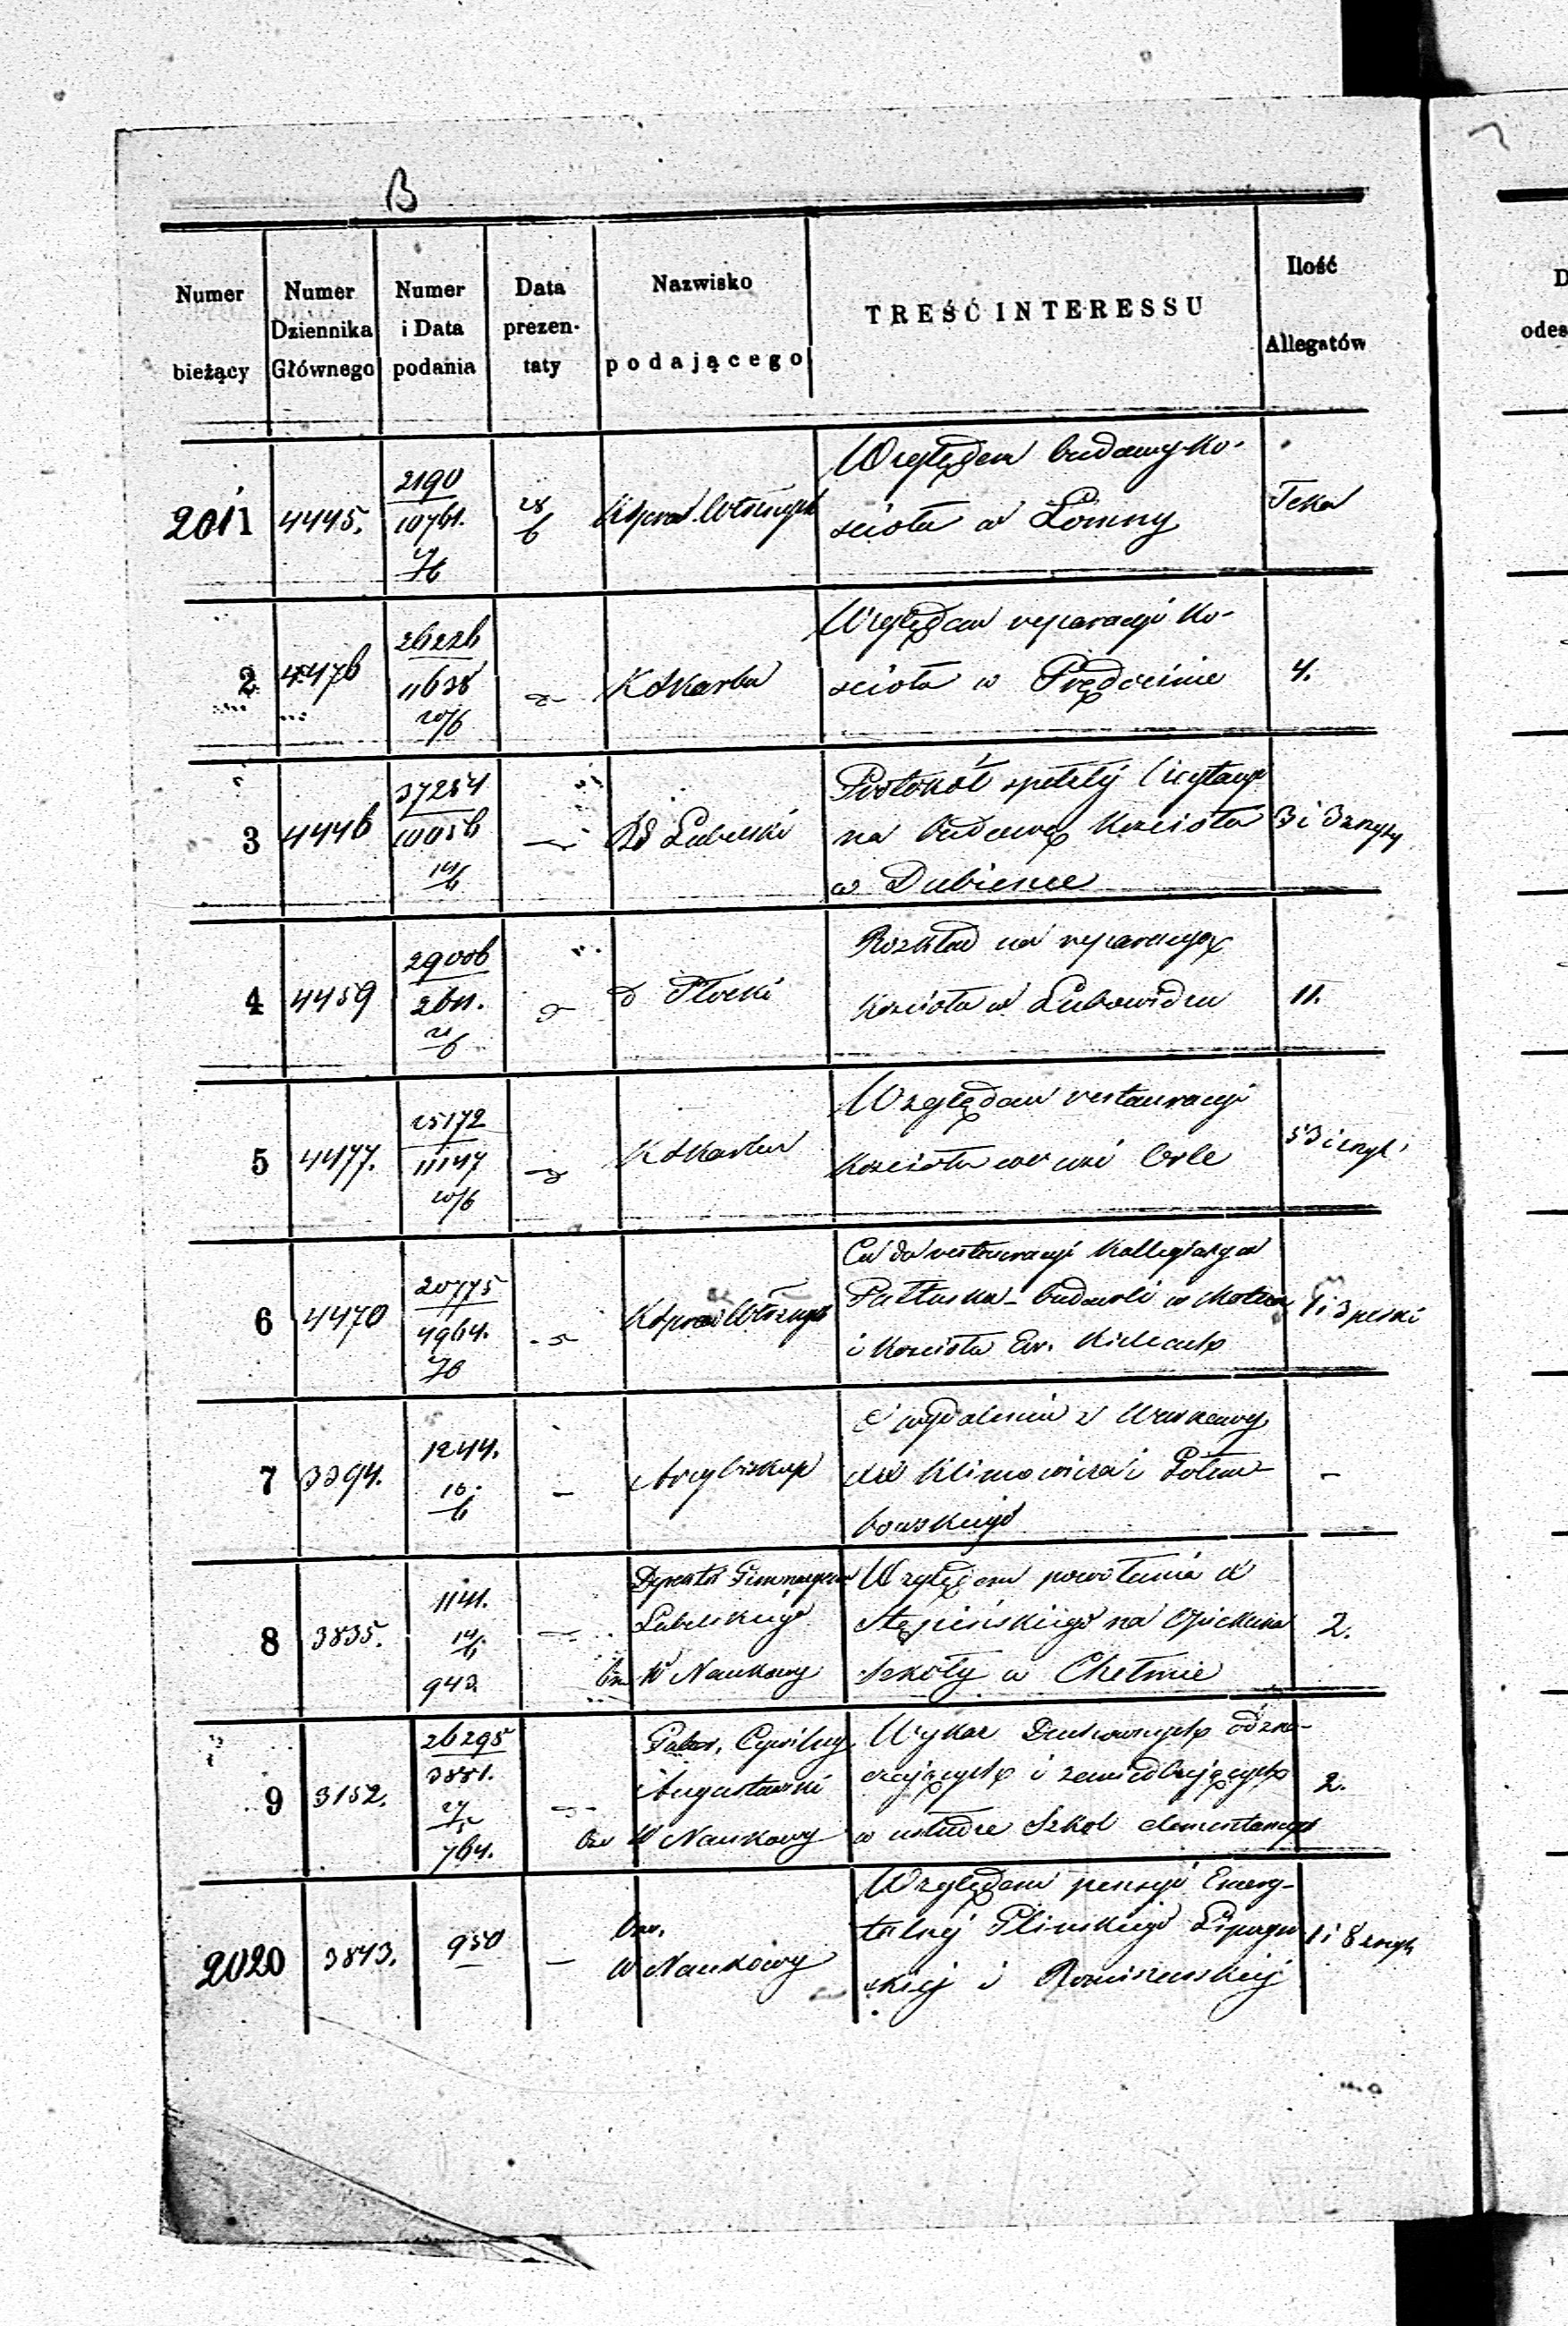 B
Numer bieżący | Numer Dziennika Głównego | Numer i Data podania | Data prezen- taty | Nazwisko podającego | TREŚĆ INTERESSU | Ilość Allegatów
2011 | 4445. | 2190 10761. | 28/6 | Względem budowy Ko-
scioła w Łomny | Teka
2 | 4476 | 26226 11638 20/6 | K Skarbu | Względem reparacyi Ko-
scioła w Prędocinie | 4.
3 | 4446 | 37284 10056 14/6 | Rd Lubelski | Protokół spełzłej licytacyi
na budowę Kościoła
w Dubience | 3 i 3
4 | 4459 | 29006 2611. 21/6 | d Płocki | Rozkład na reparacyę
Kościoła w Lubowidzu | 11.
5 | 4477. | 25172 11147 20/6 | K Skarbu | Względem restauracyi
Kościoła we wsi Orle
6 | 4470 | 20775 4964. | Co do restauracyi Kollegiaty w
Pułtusku - budowli w
i Kościoła Ew. Kielcach | 1 i 3
7 | 3394. | 1244. 10/6 | — | Arcybiskup | O wydalenie z Warszawy
Klimowicza i
bowskiego | —
8 | 3835. | 1141. 14/6 943. | Dyrektor Gimnazyum
Lubelskiego
W Naukowy | Względem powołania X
Stępińskiego na Opiekuna
Szkoły w Chełmie | 2.
9 | 3152. | 26295 3881. 27/5 764. | Guber. Cywilny
Augustowski
W Naukowy | Wykaz Duchownych odzna-
czających i zaniedbujących
w Szkół elementarnych | 2.
2020 | 3843. | 950 | — | W Naukowy | Względem pensyi Emery-
talnej Glinskiego
skiej i | 1 i 8
D
odes